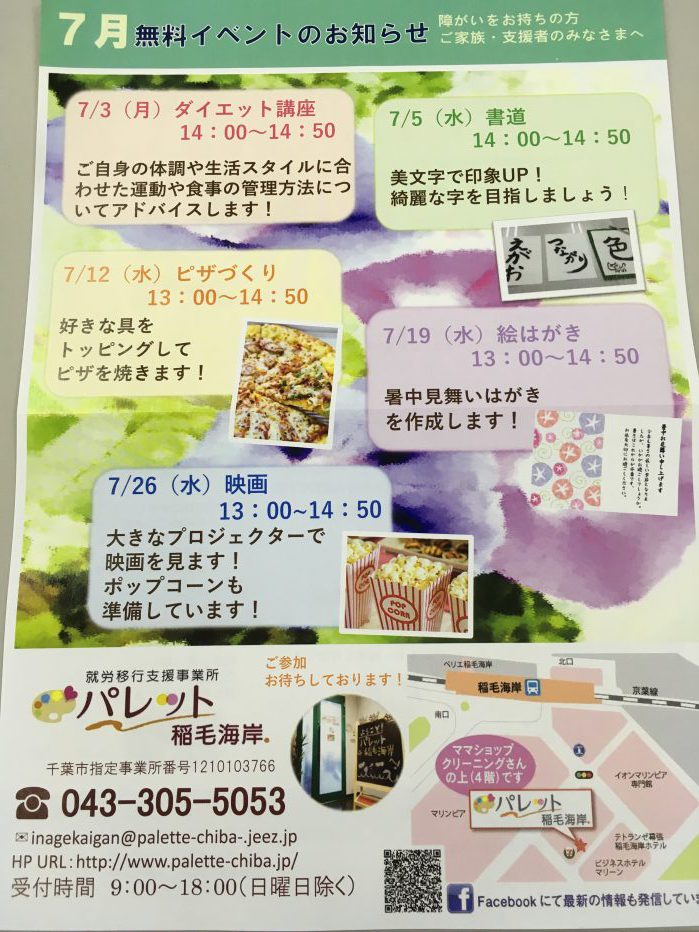 7月 無料イベントのお知らせ
障がいをお持ちの方
ご家族・支援者のみなさまへ
7/3（月）ダイエット講座
14：00～14：50
ご自身の体調や生活スタイルに合
わせた運動や食事の管理方法につ
いてアドバイスします！
7/5（水）書道
14：00～14：50
美文字で印象UP！
綺麗な字を目指しましょう！
えがお
つながり
色
7/12（水）ピザづくり
13：00～14：50
好きな具を
トッピングして
ピザを焼きます！
7/19（水）絵はがき
13：00～14：50
暑中見舞いはがき
を作成します！
暑中お見舞い申し上げます
7/26（水）映画
13：00~14：50
大きなプロジェクターで
映画を見ます！
ポップコーンも
準備しています！
POP
CORN
就労移行支援事業所
パレット
稲毛海岸.
千葉市指定事業所番号1210103766
043-305-5053
✉inagekaigan@palette-chiba-.jeez.jp
HP URL：http://www.palette-chiba.jp/
受付時間 9:00～18:00（日曜日除く）
ご参加
お待ちしております！
ようこそ！
パレット
稲毛海岸
ペリエ稲毛海岸
北口
稲毛海岸
京葉線
南口
ママショップ
クリーニングさん
の上(4階)です
イオンマリンピア
専門館
マリンピア
パレット
稲毛海岸.
テトランゼ幕張
稲毛海岸ホテル
ビジネスホテル
マリーン
Facebookにて最新の情報も発信していま